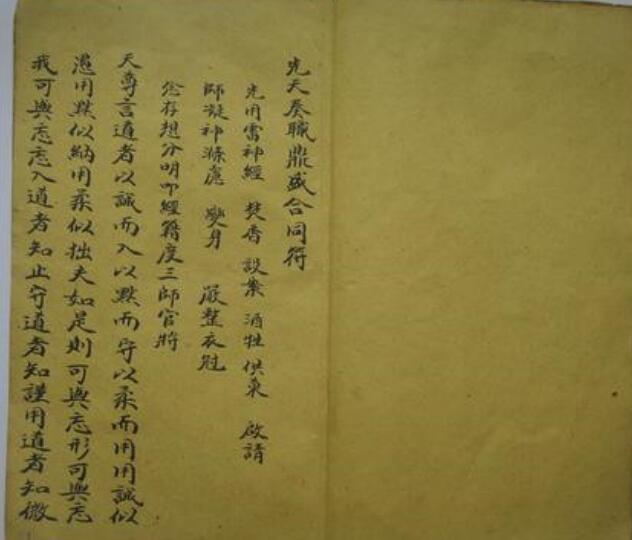 先天奏職鼎盛合同符
先用雷神經 焚香 設案 酒牲供菓 啟請
師凝神滌慮 變身 嚴整衣冠
念存想分明叩經籍度三師官將
天尊言道者以誠而入以默而守以柔而用用誠似
愚用默似納用柔似拙夫如是則可與忘形可與忘
我可與忘忘入道者知止守道者知謹用道者知微